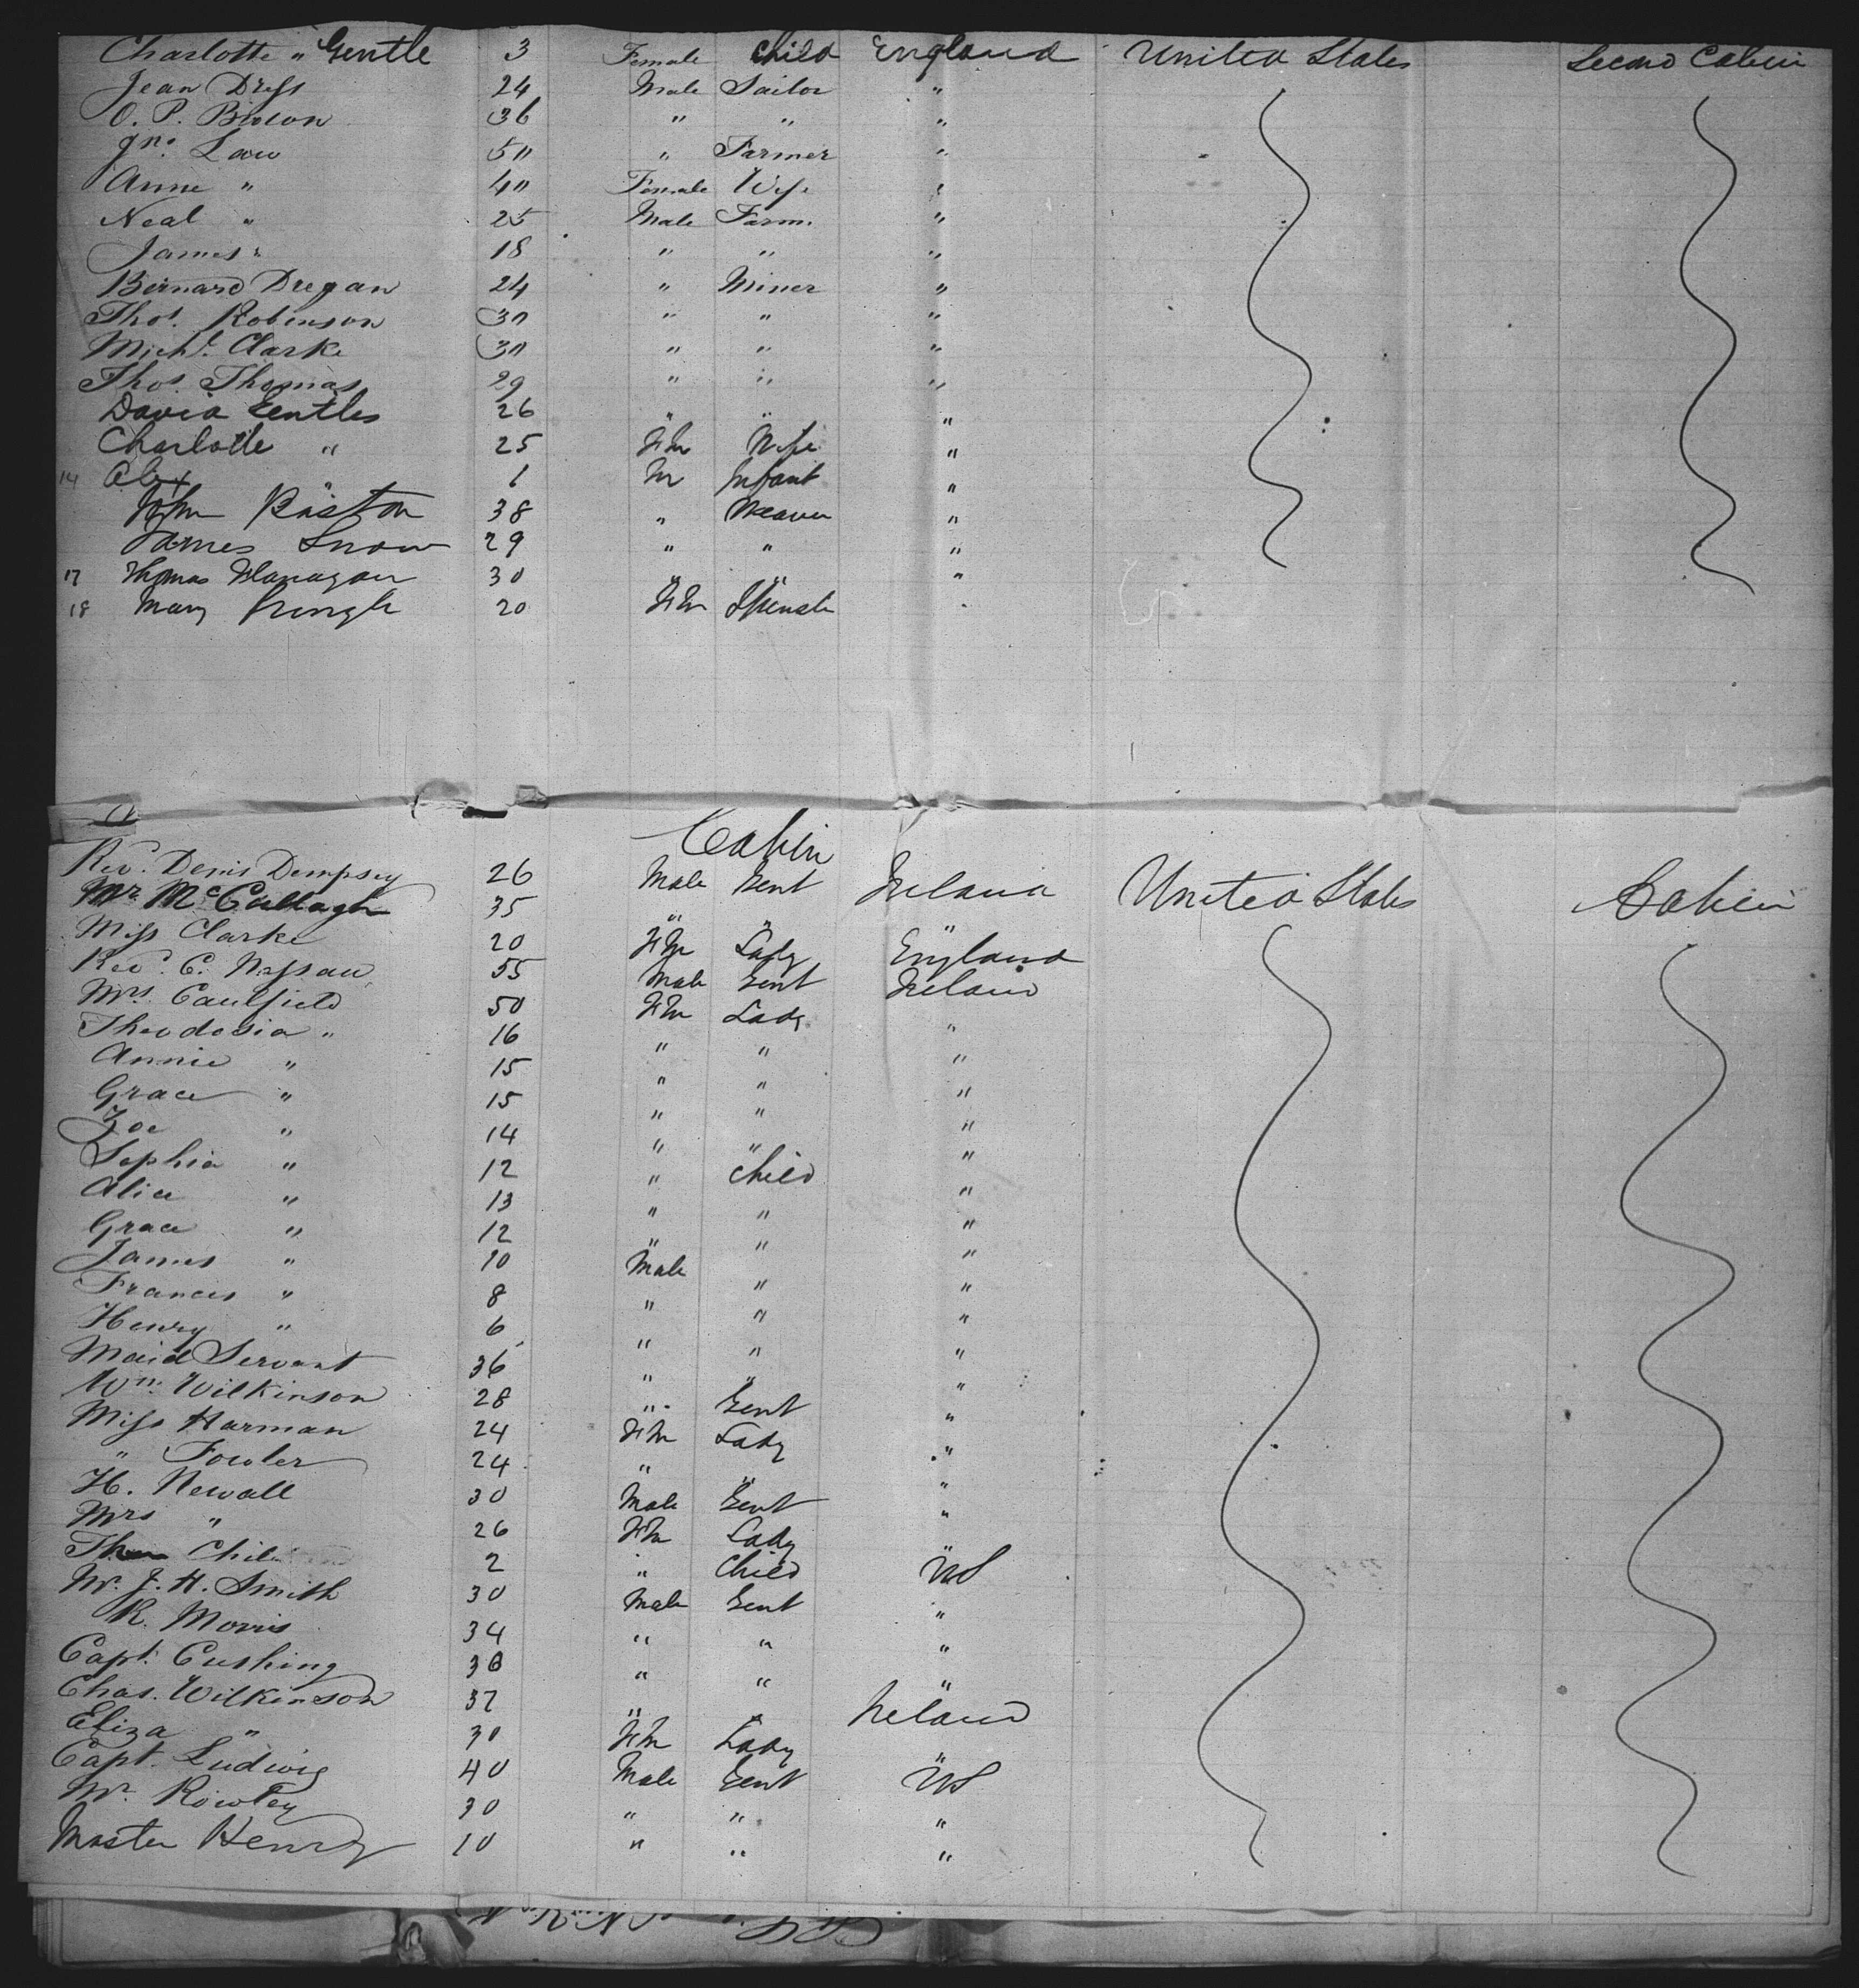 Charlotte " Gentle 3 Female Child England United States Second Cabin
Jean Dress 24 Male Sailor "
O. P. Brown 36 " " "
Jno. Law 50 " Farmer "
Anne " 40 Female Wife "
Neal " 25 Male Farm. "
James " 18 " " "
Bernard Dregan 24 " Miner "
Thos. Robinson 30 " " "
Michl. Clarke 30 " " "
Thos. Thomas 29 " " "
David Gentles 26 " " "
Charlotte " 25 Fm Wife "
14 Alex 1 M Infant "
John Baston 38 " Weaver "
James Snow 29 " " "
17 Thomas Flanagan 30 " " "
18 Mary Pringle 20 Fm Spinster
Cabin
Rev. Denis Dempsey 26 Male Gent Ireland United States Cabin
Mr McCullagh 35 " "
Miss Clarke 20 Fm Lady England
Rev. C. Nassau 55 Male Gent Ireland
Mrs Caulfield 50 Fm Lady "
Theodosia " 16 " " "
Annie " 15 " " "
Grace " 15 " " "
Zoe " 14 " " "
Sophia " 12 " Child "
Alice " 13 " " "
Grace " 12 " " "
James " 10 Male " "
Frances " 8 " " "
Henry " 6 " " "
Maid Servant 36 " " "
Wm Wilkinson 28 " Gent "
Miss Harman 24 Fm Lady "
" Fowler 24 " " "
H. Newall 30 Male Gent "
Mrs " 26 Fm Lady "
Child 2 " Child US
Mr. J. H. Smith 30 Male Gent "
R. Morris 34 " " "
Capt. Cushing 36 " " "
Chas. Wilkinson 37 " " Ireland
Eliza " 30 Fm Lady "
Capt. Ludwig 40 Male Gent US
Mr. Rowley 30 " " "
Master Henry 10 " " "